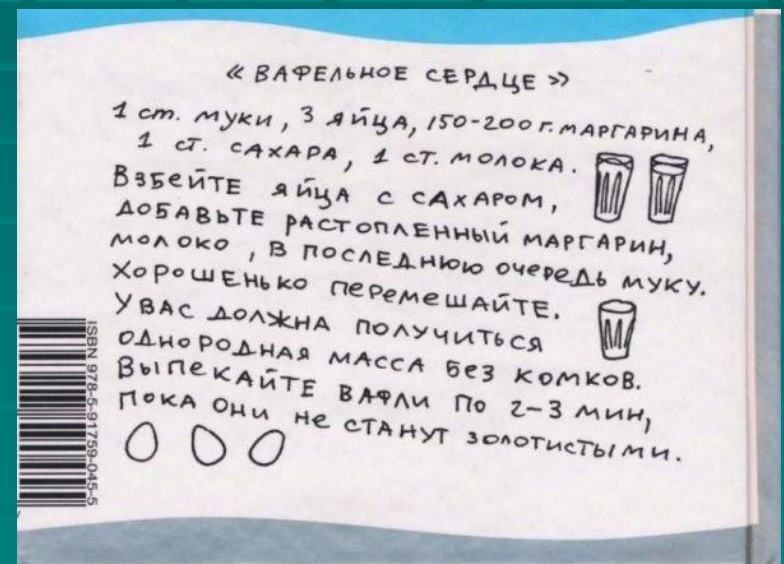 « ВАФЕЛЬНОЕ СЕРДЦЕ »
1 ст. МУКИ, 3 ЯЙЦА, 150-200 г. МАРГАРИНА,
1 СТ. САХАРА, 1 СТ. МОЛОКА.
ВЗБЕЙТЕ ЯЙЦА С САХАРОМ,
ДОБАВЬТЕ РАСТОПЛЕННЫЙ МАРГАРИН,
МОЛОКО, В ПОСЛЕДНЮЮ ОЧЕРЕДЬ МУКУ.
ХОРОШЕНЬКО ПЕРЕМЕШАЙТЕ.
У ВАС ДОЛЖНА ПОЛУЧИТЬСЯ
ОДНОРОДНАЯ МАССА БЕЗ КОМКОВ.
ВЫПЕКАЙТЕ ВАФЛИ ПО 2-3 МИН,
ПОКА ОНИ НЕ СТАНУТ ЗОЛОТИСТЫМИ.
ISBN 978-5-91759-045-5